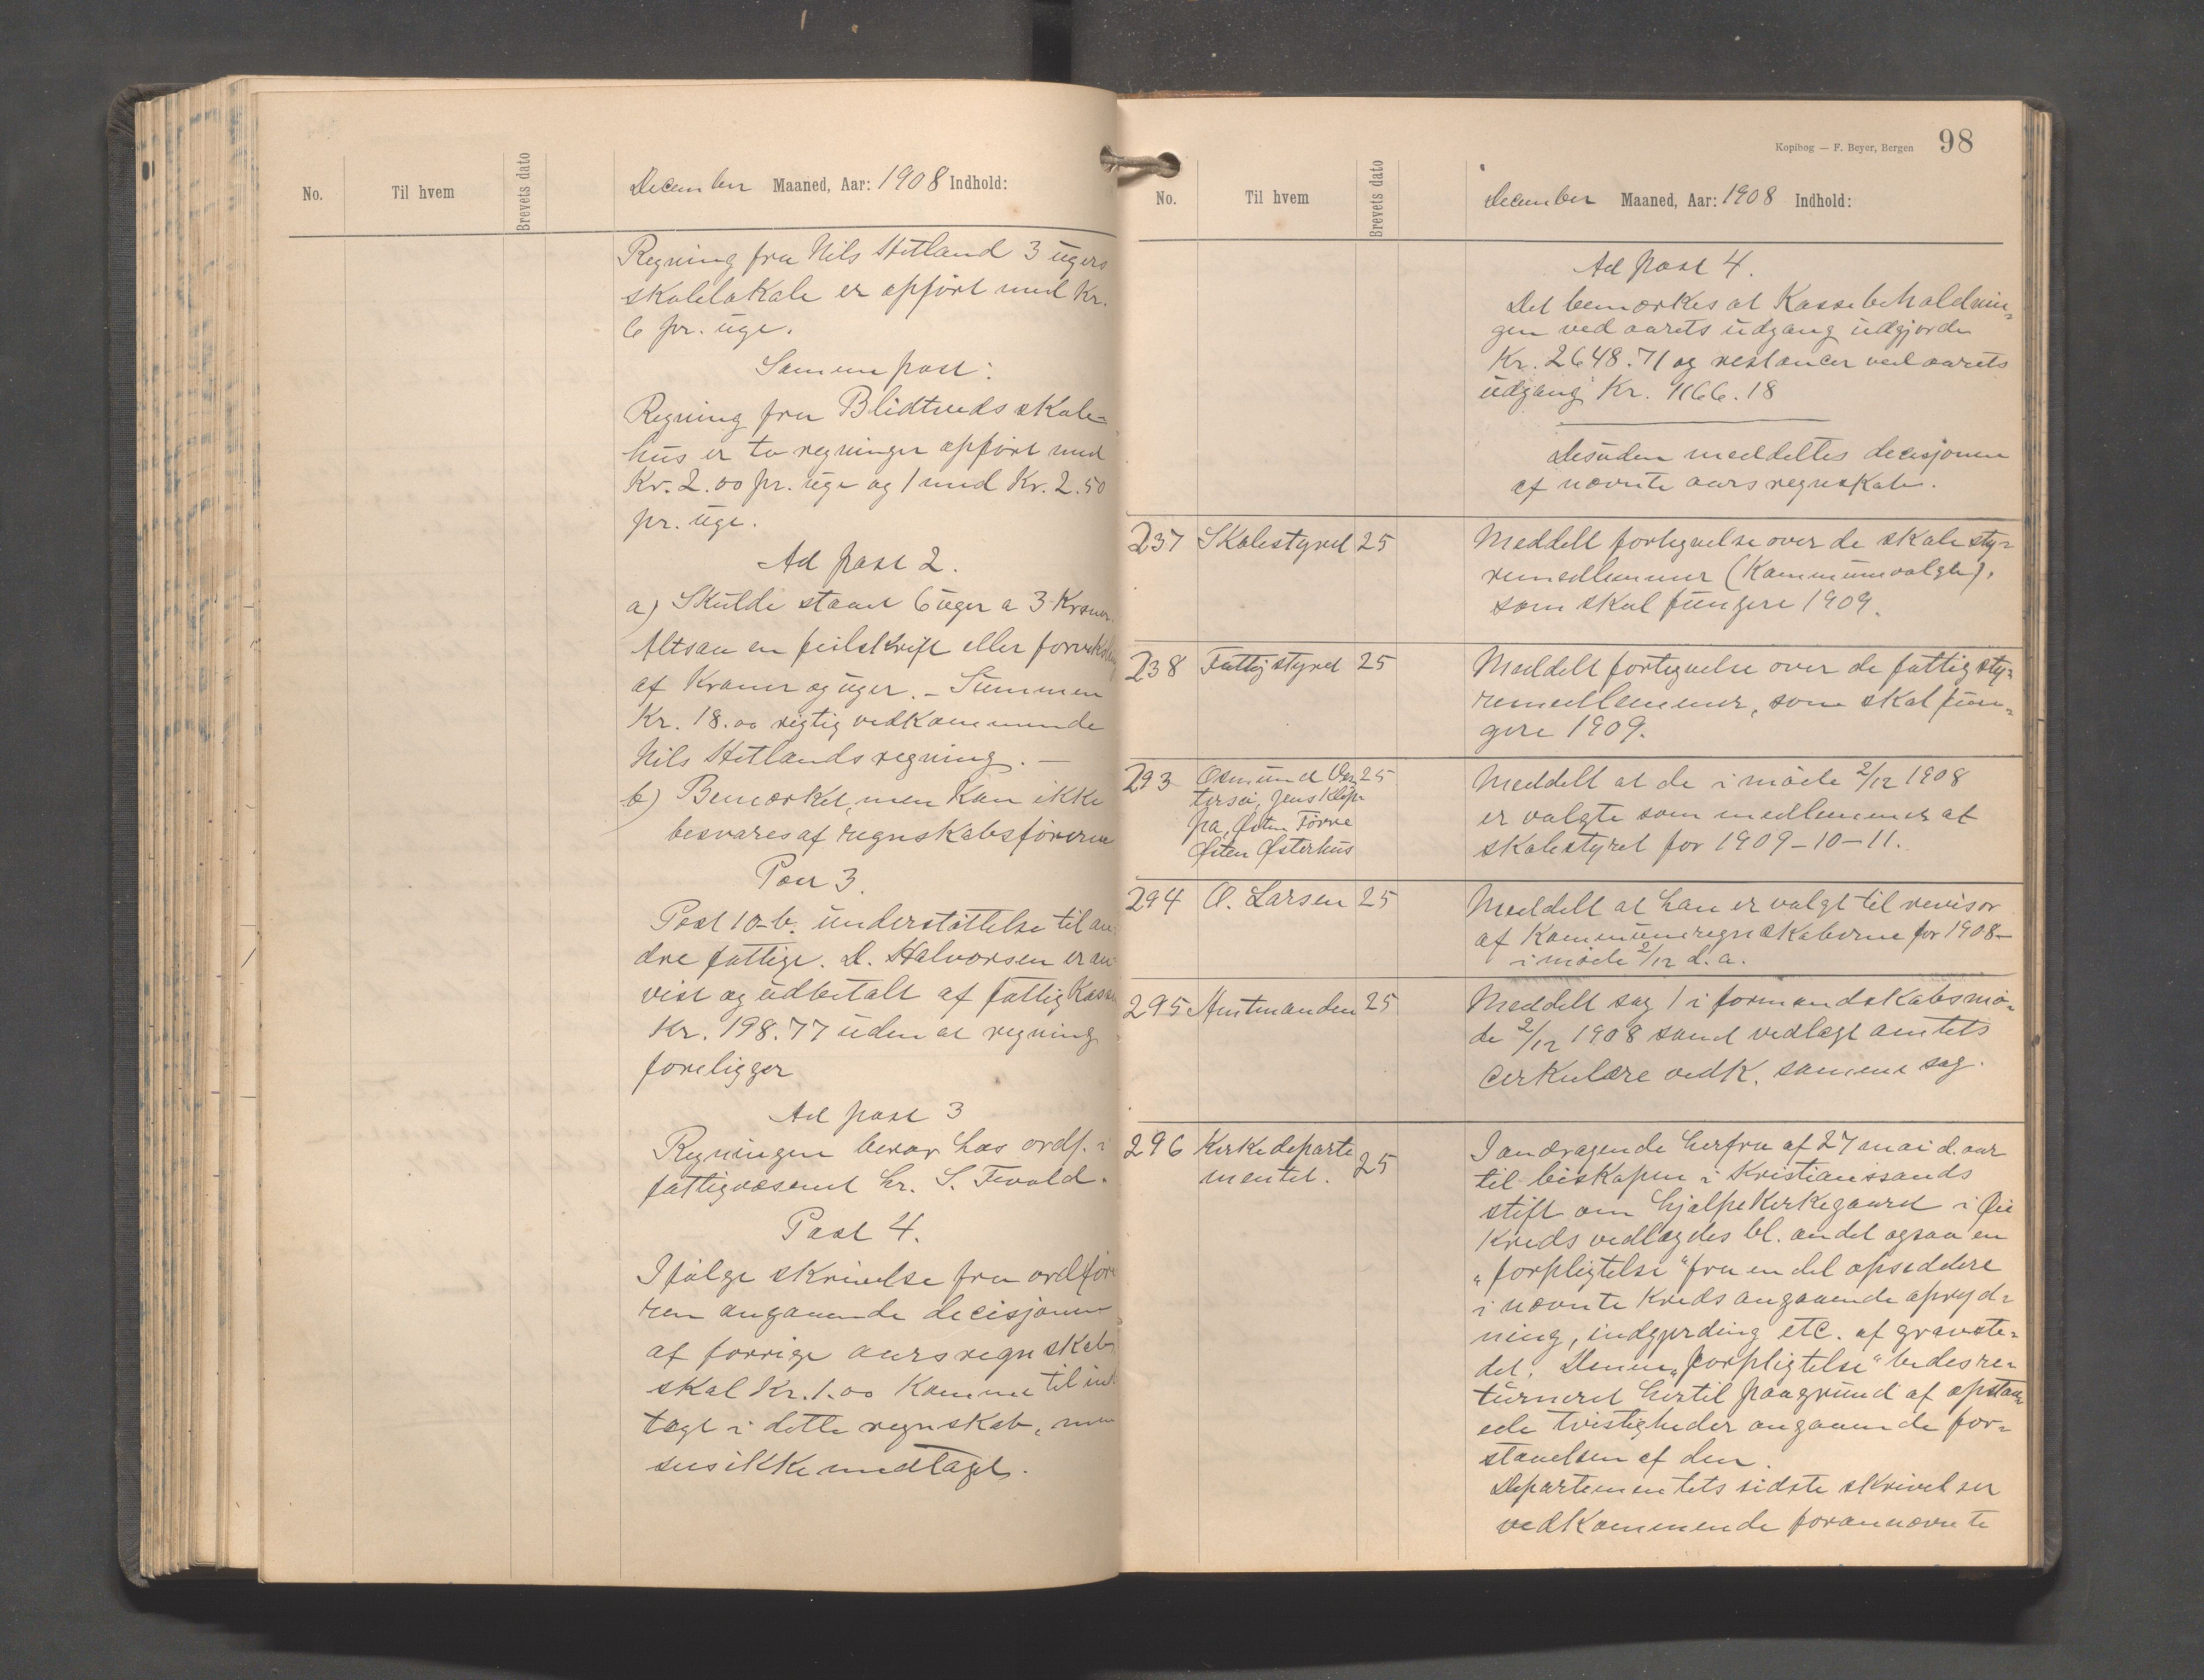 No. Til hvem Brevets dato December Maaned, Aar: 1908 Indhold:
Regning fra Nils Hetland 3 ugers
skolelokale er opført med Kr.
6 pr. uge.
Samme post:
Regning fra Blidtveds skole-
hus er to regninger opført med
Kr. 2.00 pr. uge og 1 med Kr. 2.50
pr. uge.
Ad post 2.
a) Skulde staaet 6 uger a 3 Kroner.
Altsaa en feilskrift eller
af Kroner og uger. - Summen
Kr. 18.00 rigtig vedkommende
Nils Hetlands regning. —
b) Bemærket, men kan ikke
besvares af regnskabsførerne
Post 3.
Post 10-b. understøttelse til an-
dre fattige. D. Halvorsen er an-
vist og udbetalt af fattigkassen
Kr. 198.77 uden at regning
foreligger
Ad post 3
Regningen beror hos ordf. i
fattigvæsenet hr. S. Tvvold.
Post 4.
Ifølge skrivelse fra ordfør
ren angaaende decisjonen
af forrige aars regnskab
skal Kr. 1.00 komme til ind
tægt i dette regnskab, men
sees ikke medtaget.
Kopibog — F. Beyer, Bergen 98
No. Til hvem Brevets dato December Maaned, Aar: 1908 Indhold:
Ad post 4.
Det bemærkes at Kassebeholdnin-
gen ved aarets udgang udgjorde
Kr. 2648.71 og restancer ved aarets
udgang Kr. 1166.18
Desuden meddeltes decisjonen
af nævnte aars regnskab.
237 Skolestyret 25 Meddelt fortegnelse over de skolesty-
remedlemmer (Kommunevalgte),
som skal fungere 1909.
238 Fattigstyret 25 Meddelt fortegnelse over de fattigsty-
remedlemmer, som skal fun-
gere 1909.
293 Osmund 25 Meddelt at de i møde 2/12 1908
Jens Klep- er valgte som medlemmer af
pa, Østen Førre skolestyret for 1909-10-11.
Østen Østerhus
294 O. Larsen 25 Meddelt at han er valgt til revisor
af Kommuneregnskaberne for 1908-
i møde 2/12 d.a.
295 Amtmanden 25 Meddelt sag 1 i formandskabsmø-
de 2/12 1908 samt vedlagt amtets
cerkulære vedk. samme sag.
296 Kirkedeparte 25 I andragende herfra af 27 mai d. aar
mentet. til biskopen i Kristianssands
stift om hjælpekirkegaard i Øie
Kreds vedlagdes bl. andet ogsaa en
"forpligtelse" fra en del opsiddere
i nævnte Kreds angaaende opryd-
ning, indgjerding etc. af gravste-
det. Denne "forpligtelse" bedes re-
turneret hertil paagrund af opstaa-
ede tvistigheder angaaende for-
staaelsen af den.
Departementets sidste skrivelser
vedkommende forannævnte